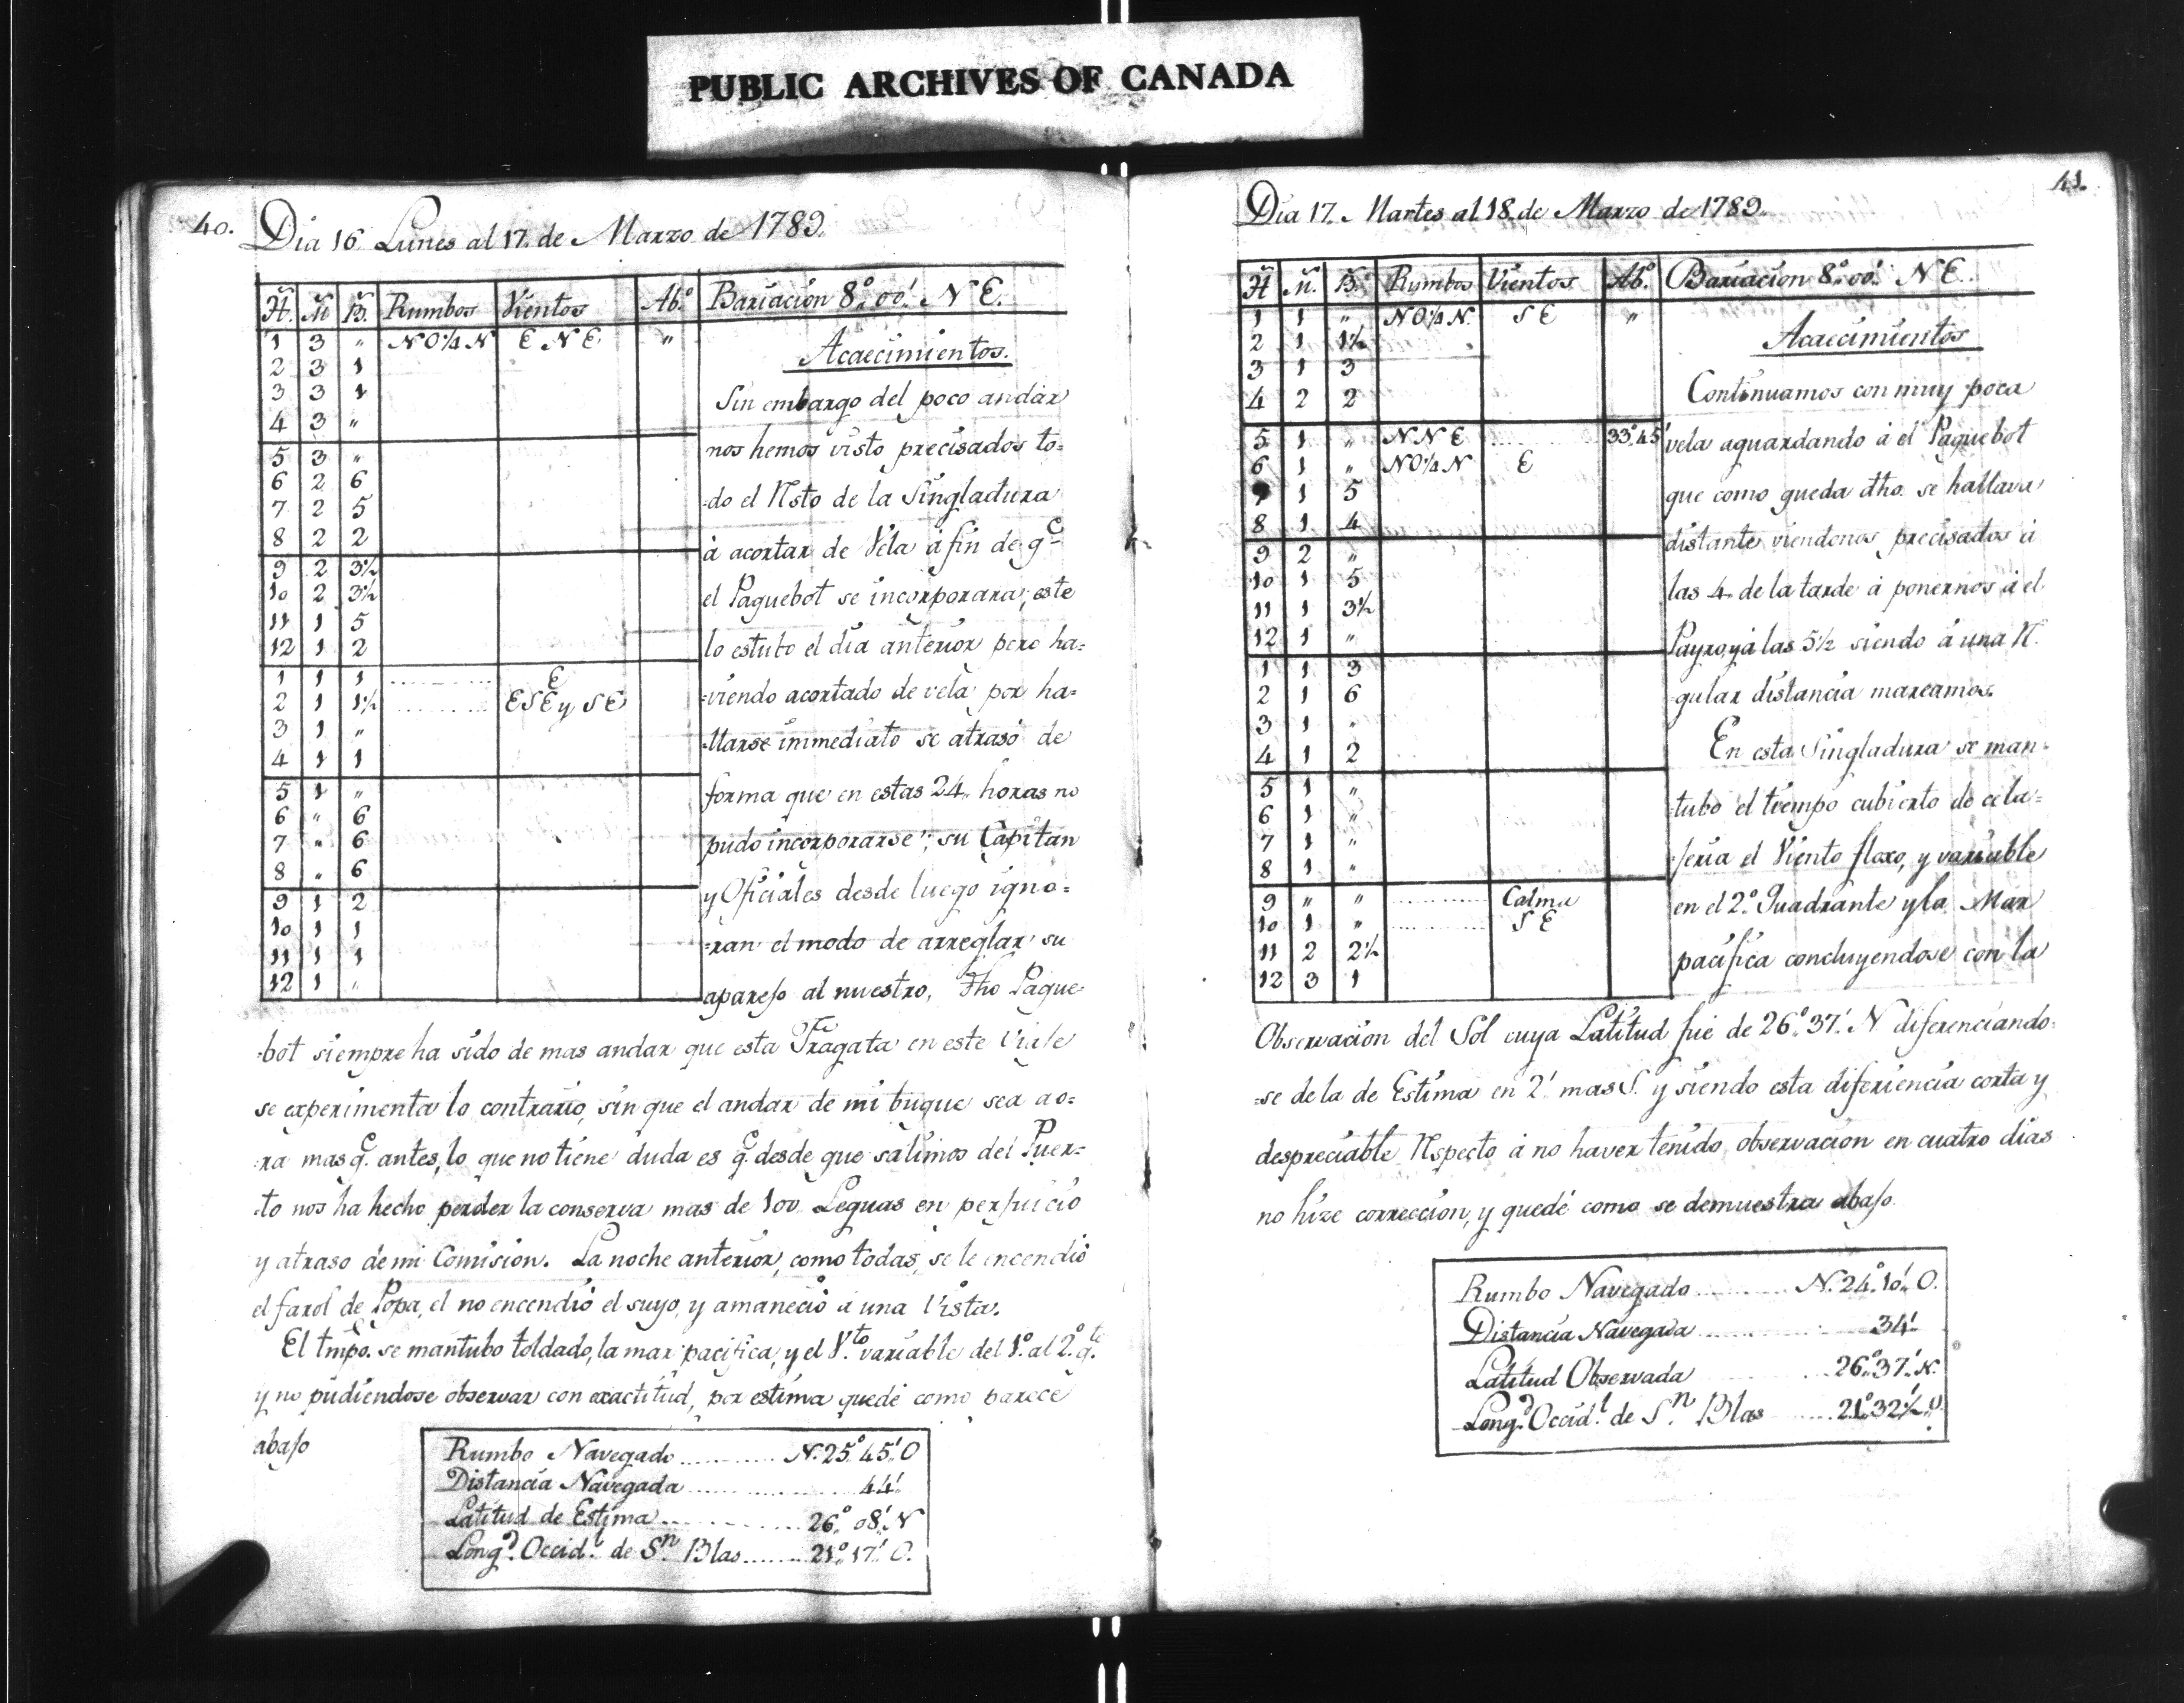 PUBLIC ARCHIVES OF CANADA
40.
Dia 16 Lunes al 17. de Marzo de 1789.
H. M B. Rumbos Vientos Ab.º Bariacion 8.º 00.' N E.
1 3 " NO¼N E N E. "
2 3 1
3 3 1
4 3 "
5 3 "
6 2 6
7 2 5
8 2 2
9 2 3½
10 2 3½
11 1 5
12 1 2
1 1 1 .......... E
2 1 1½ .......... ESE y SE
3 1 "
4 1 1
5 1 "
6 " 6
7 " 6
8 " 6
9 1 2
10 1 1
11 1 1
12 1 "
Acaecimientos.
Sin embargo del poco andar
nos hemos visto precisados to=
=do el Rsto de la Singladura
à acortar de Vela à fin de q.e
el Paquebot se incorporara; este
lo estubo el dia anterior pero ha=
=viendo acortado de vela por ha=
=llarse immediato se atrasó de
forma que en estas 24,, horas no
pudo incorporarse; su Capitan
y Oficiales desde luego igno=
=ran el modo de arreglar su
aparejo al nuestro, dho Paque=
=bot siempre ha sido de mas andar que esta Fragata en este viaje
se experimenta lo contrario, sin que el andar de mi buque sea ao=
=ra mas q.e antes, lo que no tiene duda es q.e desde que salimos del Puer=
=to nos ha hecho perder la conserva mas de 100 Leguas en perjuicio
y atraso de mi Comision. La noche anterior, como todas, se le encendió
el farol de Popa, el no encendió el suyo, y amaneció à una Vista.
El tmpo. se mantubo toldado, la mar pacifica, y el V.to variable del 1.º al 2.º q.te
y no pudiendose observar con exactitud, por estima quedé como parece
abajo
Rumbo Navegado .......... N. 25.º 45.' O
Distancia Navegada .......... 44.'
Latitud de Estima .......... 26.º 08.' N
Long.d Occid.l de S.n Blas ....... 21.º 17.' O.
41.
Dia 17. Martes al 18. de Marzo de 1789.
H M. B. Rumbos Vientos Ab.º Bariacion 8.º 00.' N E.
1 1 " NO¼N. S E "
2 1 1½
3 1 3
4 2 2
5 1 " N N E .......... 33.º 45'
6 1 " NO¼N E
7 1 5
8 1 4
9 2 "
10 1 5
11 1 3½
12 1 "
1 1 3
2 1 6
3 1 "
4 1 2
5 1 "
6 1 "
7 1 "
8 1 "
9 " " .......... Calma
10 1 " .......... S E
11 2 2½
12 3 1
Acaecimientos
Continuamos con muy poca
vela aguardando à el Paquebot
que como queda dho. se hallava
distante viendonos precisados à
las 4 de la tarde à ponernos à el
Payro, y à las 5½ siendo à una R.
gular distancia mareamos.
En esta Singladura se man=
=tubo el tiempo cubierto de cela=
=jeria el Viento floxo, y variable
en el 2.º Quadrante y la Mar
pacifica concluyendose con la
Observacion del Sol cuya Latitud fue de 26.º 37.' N diferenciando=
=se de la de Estima en 2.' mas S. y siendo esta diferiencia corta y
despreciable Rspecto à no haver tenido observacion en cuatro dias
no hize correccion, y quedé como se demuestra abajo.
Rumbo Navegado .......... N. 24.º 10.' O.
Distancia Navegada .......... 34.'
Latitud Observada .......... 26.º 37.' N.
Long.d Occid.l de S.n Blas ....... 21.º 32½.' O.